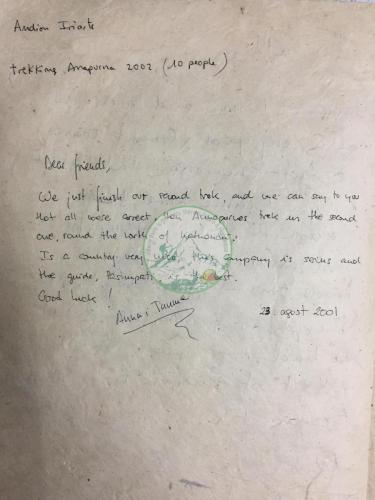 Andion Iriarte
trekking Anapurna 2002 (10 people)
Dear friends,
We just finish our second trek, and we can say to you
that all were correct, the Annapurnas trek in the second
one, round the north of Kathmandu.
Is a country very nice, this company is serius and
the guide, Pasimpati is the best.
Good luck!
Anna i Jaume
23 agost 2001